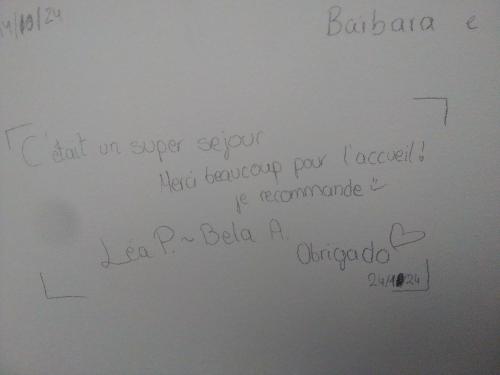 14/10/24
Barbara e
C'était un super sejour
Merci beaucoup pour l'accueil!
je recommande
Léa P. ~ Bela A.
Obrigado